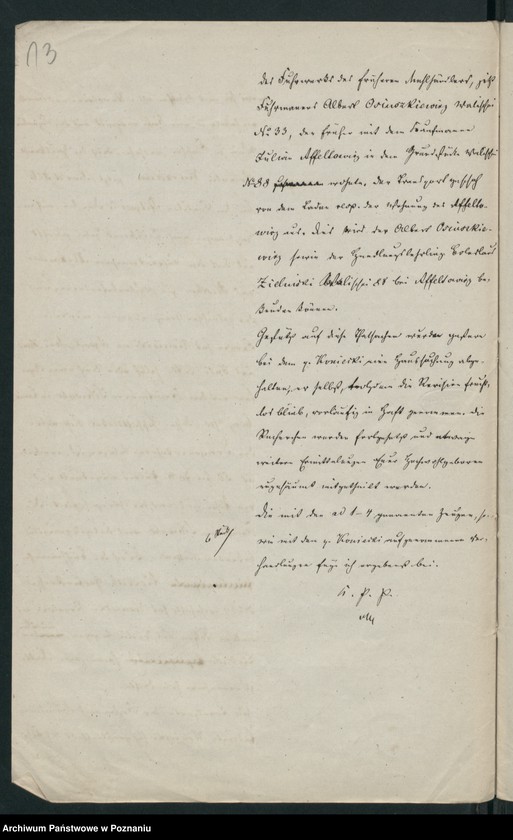 13
des Fuhrwerks des früheren Mehlhändlers, jetzt
Fuhrmanns Albert Osinszkiewicz Wallischei
No 33, der früher mit dem Kaufmann
Julian Affeltowicz in dem Grundstück Wallischei
No 88 wohnte, der Transport geschah
von dem Laden resp. der Wohnung des Affelto-
wicz aus. Dies wird der Albert Osinskie-
wicz sowie der Handlungslehrling Boleslaus
Zielinski Wallischei 88 bei Affeltowicz be-
kunden können.
Gestützt auf diese Thatsachen wurde gestern
bei dem p. Koniecki eine Haussuchung abge-
halten, er selbst, trotzdem die Revision frucht-
los blieb, vorläufig in Haft genommen. Die
Recherchen werden fortgesetzt und etwaige
weitere Ermittelungen Euer Hochwohlgeboren
ungesäumt mitgetheilt werden.
Die mit den ad 1-4 genannten Zeugen, so-
wie mit dem p. Koniecki aufgenommenen Ver-
handlungen füge ich ergebenst bei.
6
K. P. P.
Archiwum Państwowe w Poznaniu